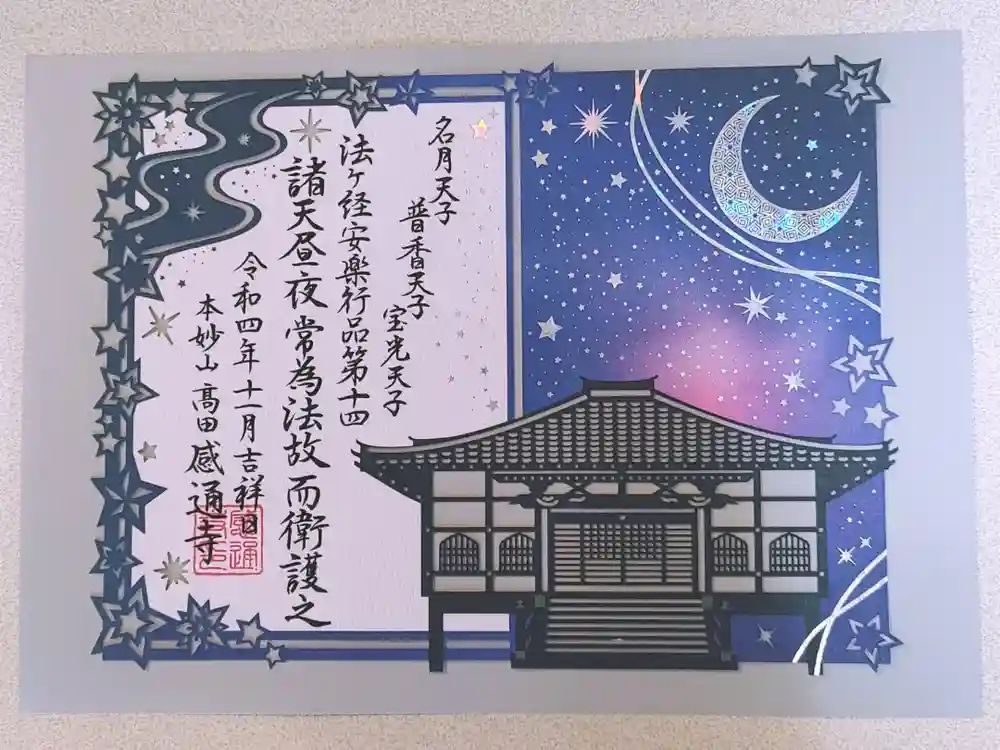 名月天子
普香天子
宝光天子
法ヶ経安楽行品第十四
諸天昼夜常為法故而衛護之
令和四年十一月吉祥日
本妙山髙田感通寺